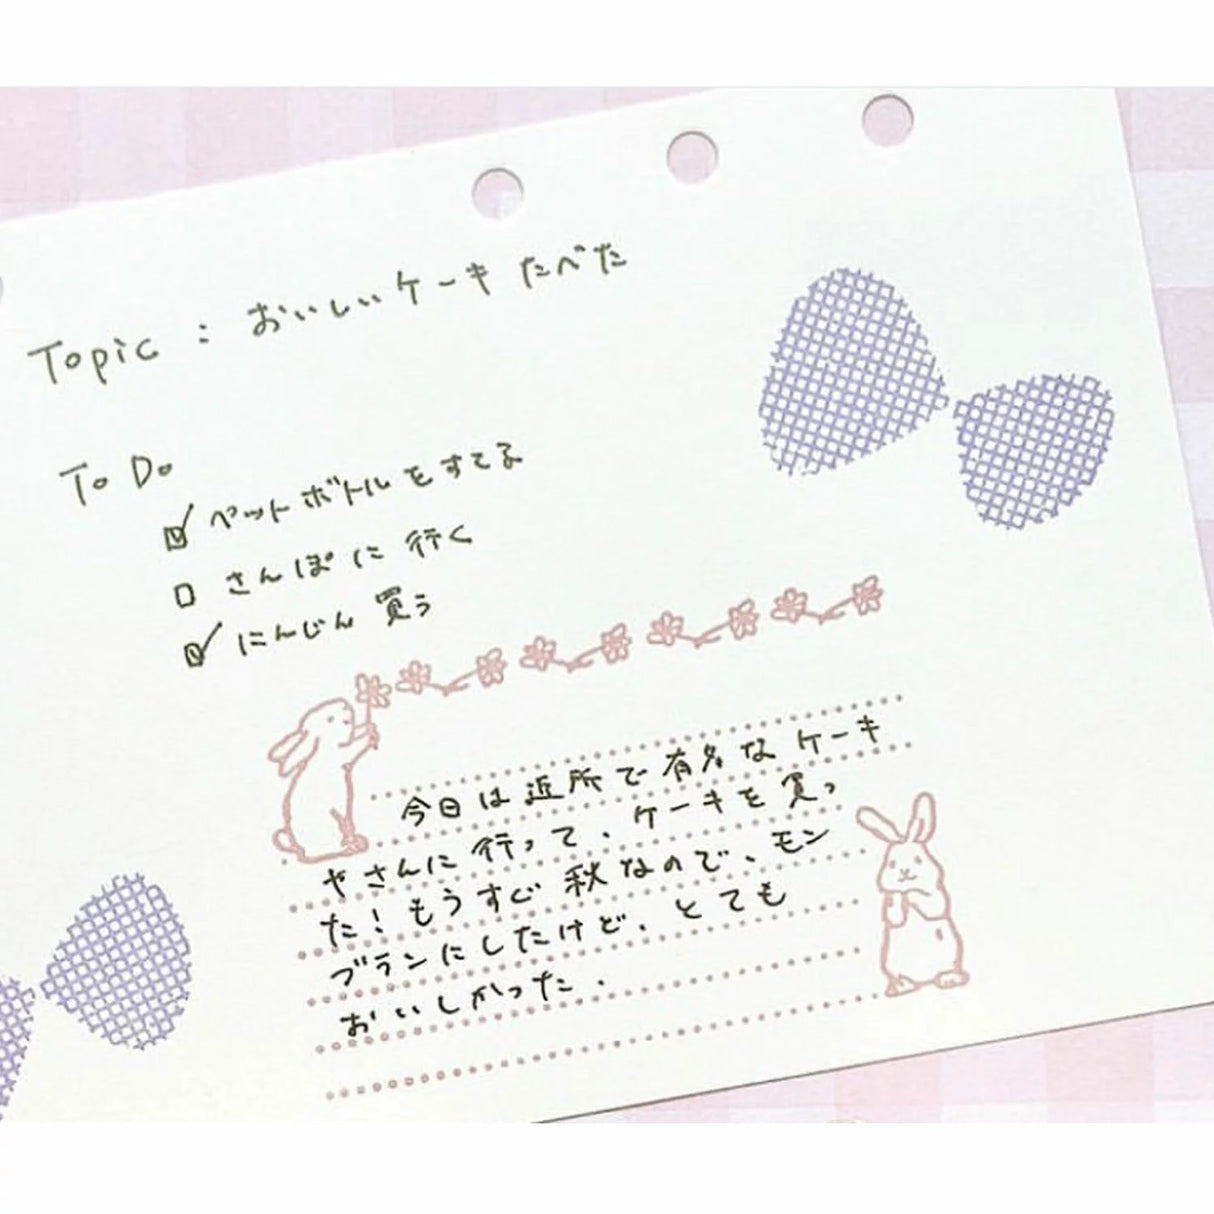 Topic : おいしいケーキ たべた
To Do
☑ ペットボトルをすてる
□ さんぽに 行く
☑ にんじん 買う
今日は近所で有名なケーキ
やさんに行って、ケーキを買っ
た！もうすぐ秋なので、モン
ブランにしたけど、とても
おいしかった.